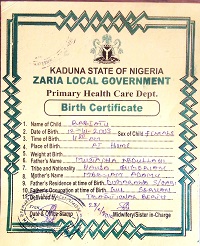 KADUNA STATE OF NIGERIA
ZARIA LOCAL GOVERNMENT
Primary Health Care Dept.
Birth Certificate
1. Name of Child RABIATU
2. Date of Birth 2003 Sex of Child FEMALE
3. Time of Birth
4. Place of Birth AT HOME
5. Weight at Birth
6. Father's Name MUSTAPHA ABDULLAHI
7. Tribe/Nationality HAUSA NIGERIAN
8. Mother's Name MARYAM ADAMU
9. Father's Residence at time of Birth
10. Father's Occupation at time of Birth CIVIL SERVANT
11. Delivered by
Date & Office Stamp
Midwifery/Sister in-Charge